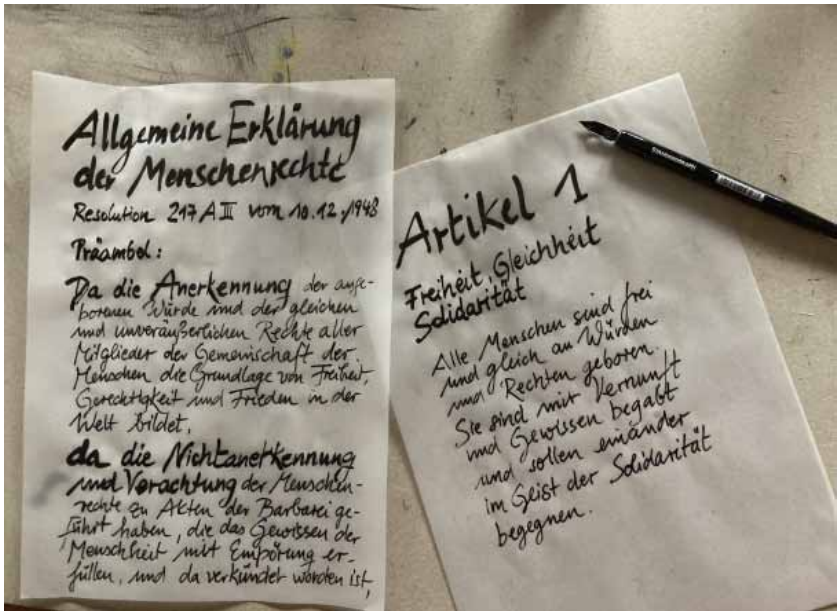 Allgemeine Erklärung
der Menschenrechte
Resolution 217 A III vom 10.12.1948
Präambel:
Da die Anerkennung der ange-
borenen Würde und der gleichen
und unveräußerlichen Rechte aller
Mitglieder der Gemeinschaft der
Menschen die Grundlage von Freiheit,
Gerechtigkeit und Frieden in der
Welt bildet,
da die Nichtanerkennung
und Verachtung der Menschen-
rechte zu Akten der Barbarei ge-
führt haben, die das Gewissen der
Menschheit mit Empörung er-
füllen, und da verkündet worden ist,
Artikel 1
Freiheit, Gleichheit
Solidarität
Alle Menschen sind frei
und gleich an Würden
und Rechten geboren.
Sie sind mit Vernunft
und Gewissen begabt
und sollen einander
im Geist der Solidarität
begegnen.